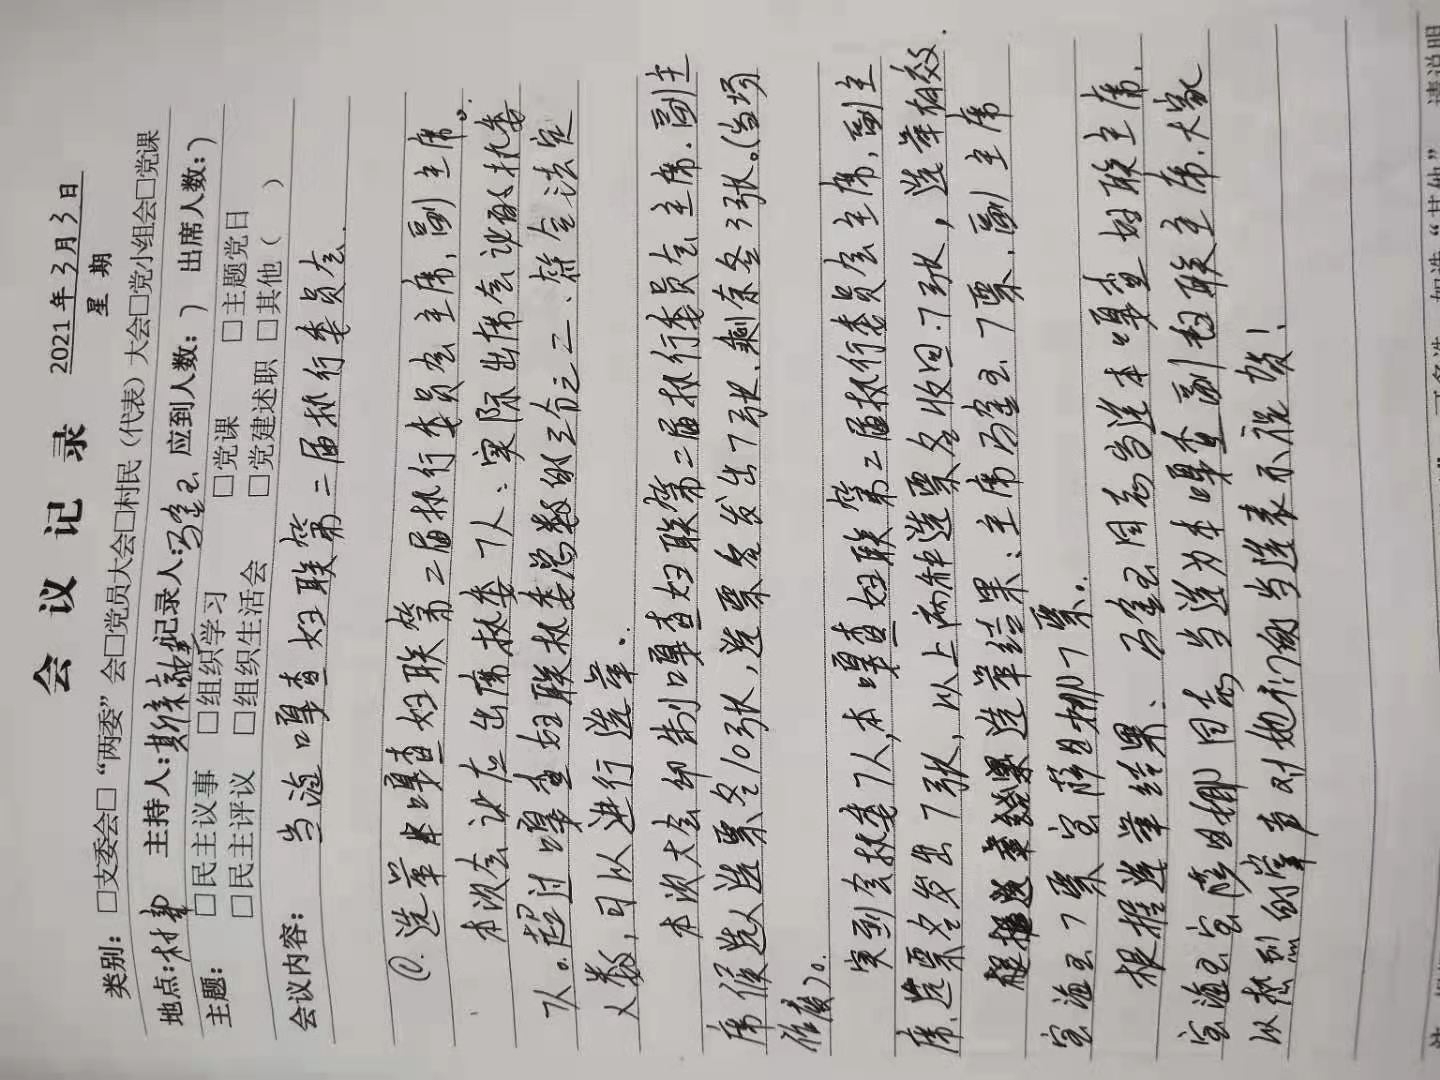 会 议 记 录
2021年3月3日
星 期
类别：□支委会□“两委”会□党员大会□村民（代表）大会□党小组会□党课
地点：村部 主持人：斯 记录人：冯金玉 应到人数：7 出席人数：7
主题：□民主议事 □组织学习 □党课 □主题党日
□民主评议 □组织生活会 □党建述职 □其他（ ）
会议内容： 当海嘎查妇联第二届执行委员会
①.选举出嘎查妇联第二届执行委员会主席，副主席。
本次会议应出席执委7人：实际出席会议的执委
7人。超过嘎查妇联执委总数的三分之二、符合法定
人数，可以进行选举。
本次大会印制嘎查妇联第二届执行委员会主席.副主
席候选人选票各10张，选票各发出7张、剩余各3张。(当场
作废)。
实到会执委7人，本嘎查妇联第二届执行委员会主席，副主
席.选票各发出7张，以上两种选票各收回：7张，选举有效.
选举结果：主席冯金玉7票，副主席
宝海玉7票 宝萨日娜7票。
根据选举结果：冯金玉同志当选本嘎查妇联主席.
宝海玉宝萨日娜同志当选为本嘎查副妇联主席.大家
以热烈的掌声对她们的当选表示祝贺！
请说明